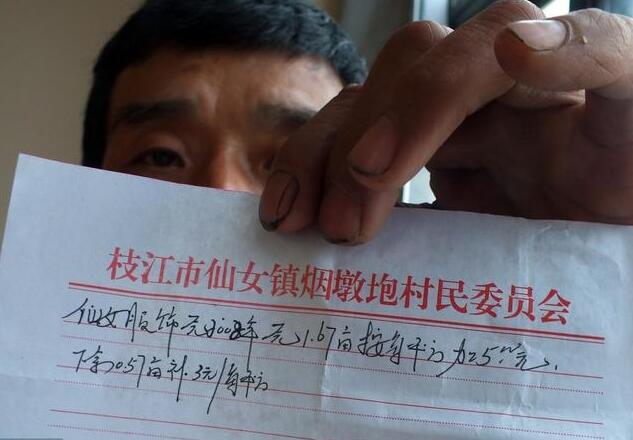 枝江市仙女镇烟墩垉村民委员会
仙女服饰 1.67亩按每平方为25元、
下余0.57亩补.3元/每平方